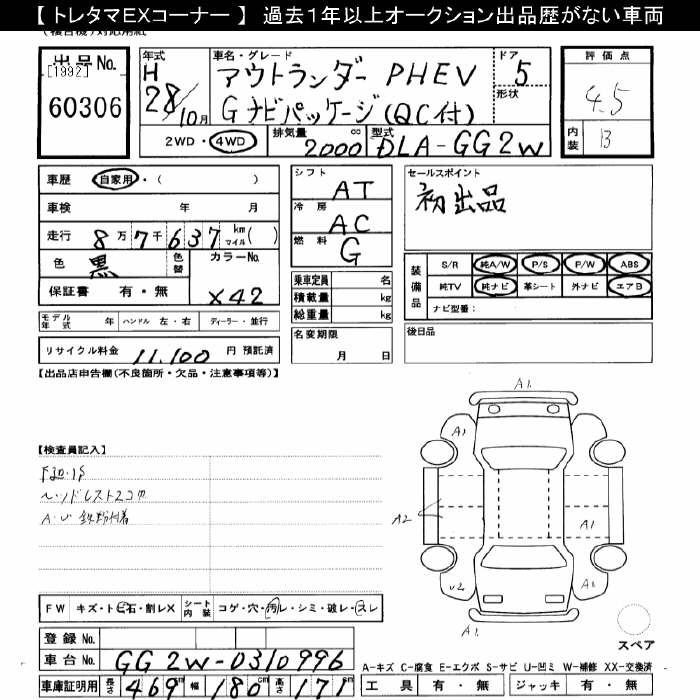 【 トレタマEXコーナー 】 過去1年以上オークション出品歴がない車両
出品 No.
[1992]
60306
年式
H
28/10月
車名・グレード
アウトランダー PHEV
G ナビパッケージ(QC付)
ドア
5
形状
2WD・4WD
排気量
cc
2000
型式
DLA-GG2W
評価点
4.5
内装
B
車歴
自家用・( )
車検 年 月
走行 8万7千637 km マイル( )
色
黒
色替
カラーNo.
X42
保証書 有・無
モデル年式 年 ハンドル 左・右 ディーラー・並行
リサイクル料金 11,100 円 預託済
シフト
AT
冷房
AC
燃料
G
乗車定員 名
積載量 kg
総重量 kg
名変期限
月 日
セールスポイント
初出品
装備品
S/R 純A/W P/S P/W ABS
純TV 純ナビ 革シート 外ナビ エアB
ナビ型番：
後日品
【出品店申告欄(不良箇所・欠品・注意事項等)】
【検査員記入】
A1
A1
A1
A2
A1
U2
A1
FW キズ・トビ石・割レX シート内装 コゲ・穴・汚レ・シミ・破レ・スレ
登録 No.
車台 No. GG2W-0310996
車庫証明用 長さ 469 幅 180 cm 高さ 171
スペア
A-キズ C-腐食 E-エクボ S-サビ U-凹ミ W-補修 XX-交換済
工具 有・無 ジャッキ 有・無